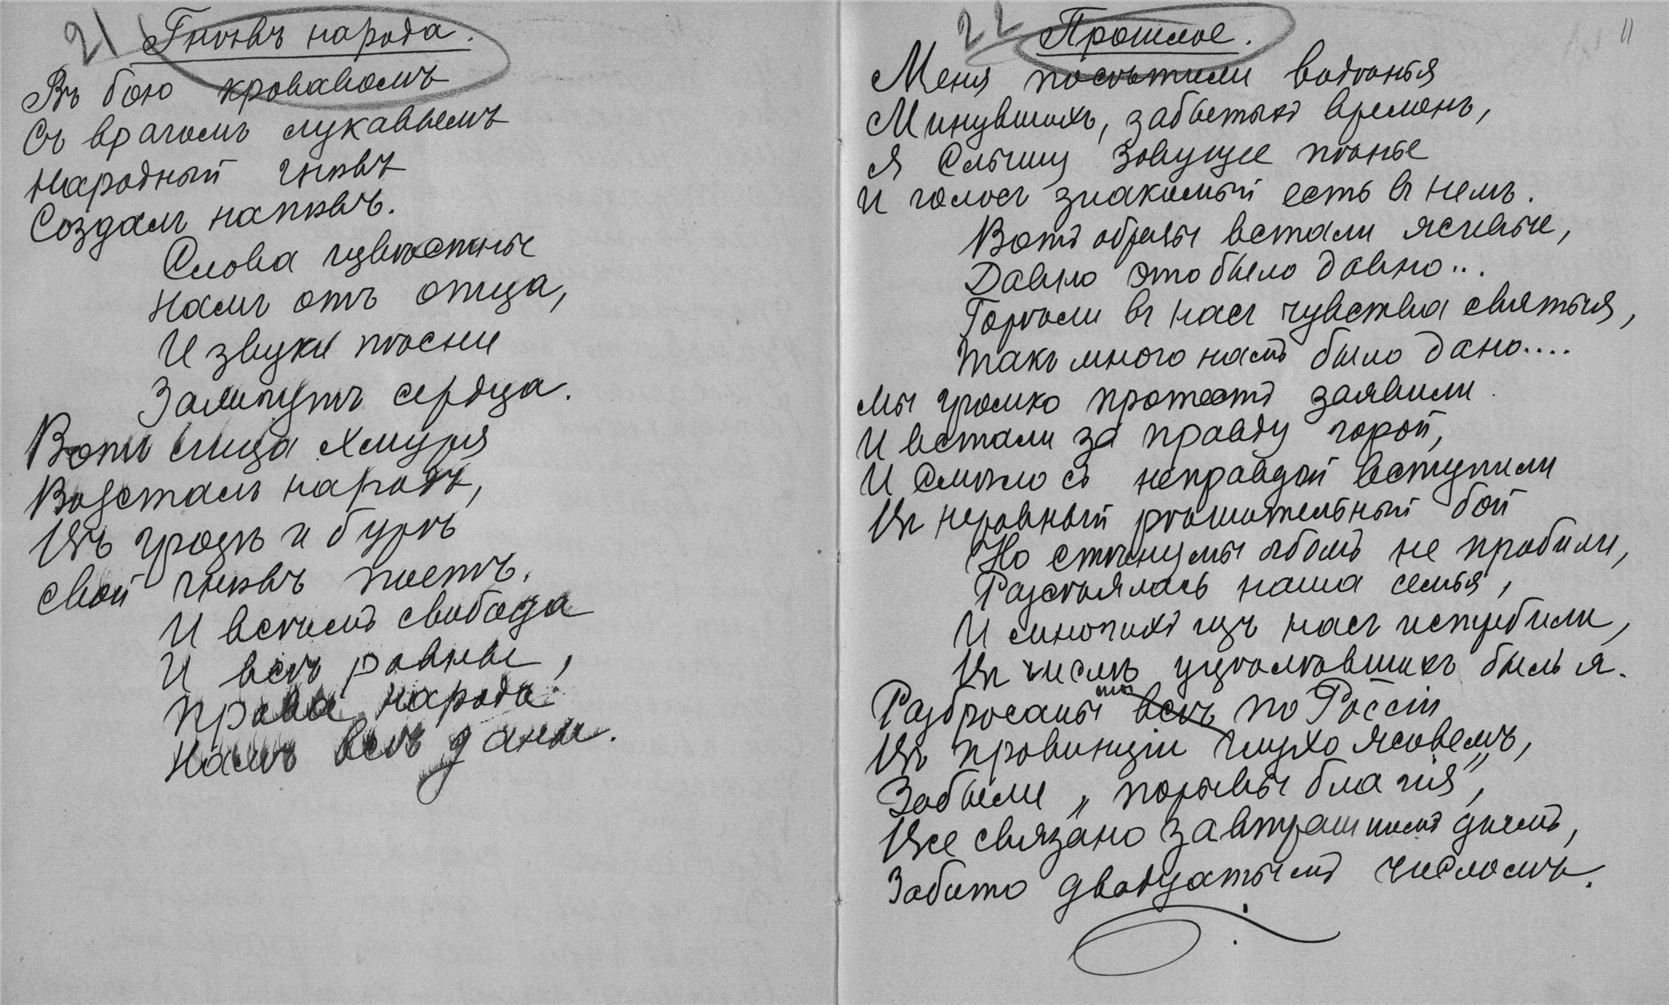 21
Гнѣвъ народа.
Въ бою кровавомъ
Съ врагомъ лукавымъ
Народный гнѣвъ
Создалъ напѣвъ.
Слова цвѣтные
Намъ отъ отца,
И звуки пѣсни
Зажгутъ сердца.
Вотъ лица хмуря
Возсталъ народъ,
Въ грозѣ и бурѣ
Свой гнѣвъ поетъ.
И всѣмъ свобода
И всѣ равны,
Права народа
Намъ всѣ даны.
22
11
Прошлое.
Меня посѣтили видѣнья
Минувшихъ, забытыхъ временъ,
Я слышу зовущее пѣнье
И голосъ знакомый есть въ немъ.
Вотъ образы встали ясные,
Давно это было давно...
Горѣли въ насъ чувства святыя,
Такъ много намъ было дано....
Мы громко протестъ заявили
И встали за правду горой,
И смѣло съ неправдой вступили
Въ неравный рѣшительный бой
Но стѣну мы лбомъ не пробили,
Разсѣялась наша семья,
И многихъ изъ насъ истребили,
Въ числѣ уцѣлѣвшихъ былъ я.
Разбросаны мы всѣ по Россіи
Въ провинціи глухо живемъ,
Забыли „порывы благія",
Все связано завтрашнимъ днемъ,
Забито двадцатымъ числомъ.